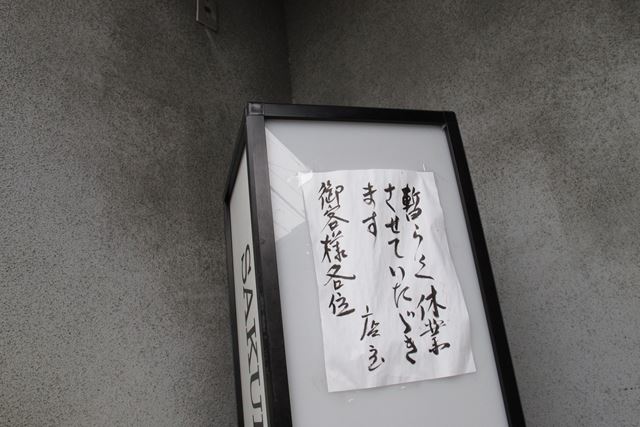 暫らく休業
させていただき
ます 店主
御客様各位
SAKU